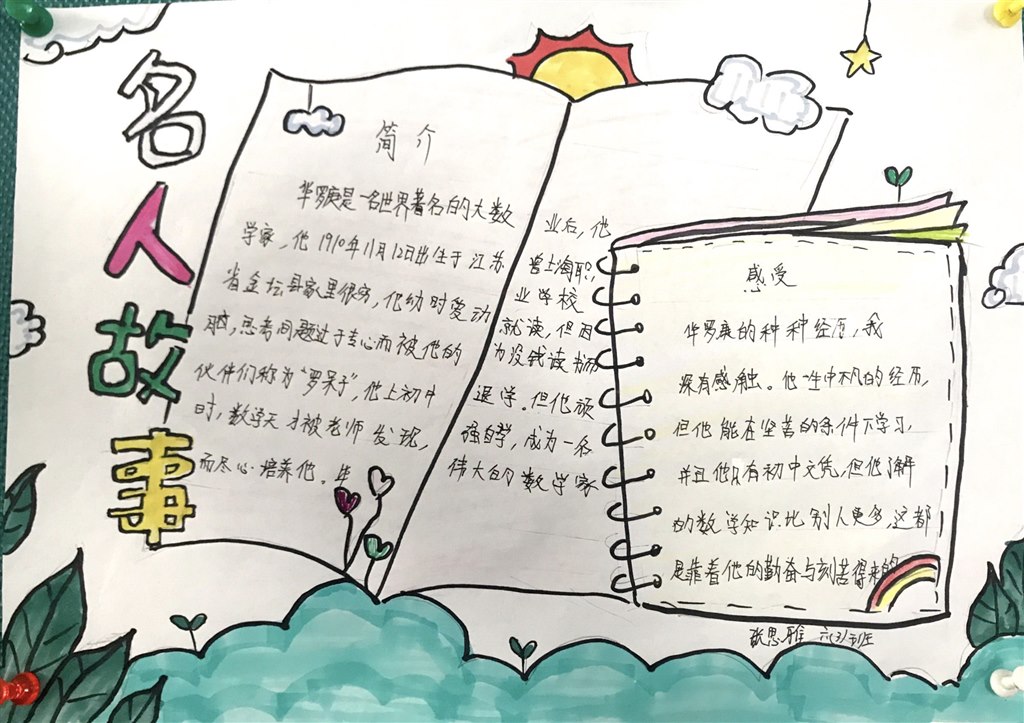 名人故事
简介
华罗庚是一名世界著名的大数
学家，他1910年11月12日出生于江苏
省金坛县家里很穷，他幼时爱动
脑，思考问题过于专心而被他的
伙伴们称为“罗呆子”，他上初中
时，数学天才被老师发现，
而尽心培养他。毕
业后，他
曾上海职，
业学校
就读，但因
为没钱读书而
退学。但他顽
强自学，成为一名
伟大的数学家
感受
华罗庚的种种经历，我
深有感触。他一生中不凡的经历，
但他能在坚苦的条件下学习，
并且他只有初中文凭，但他了解
的数学知识比别人更多，这都
是靠着他的勤奋与刻苦得来的
张思雅 六(3)班